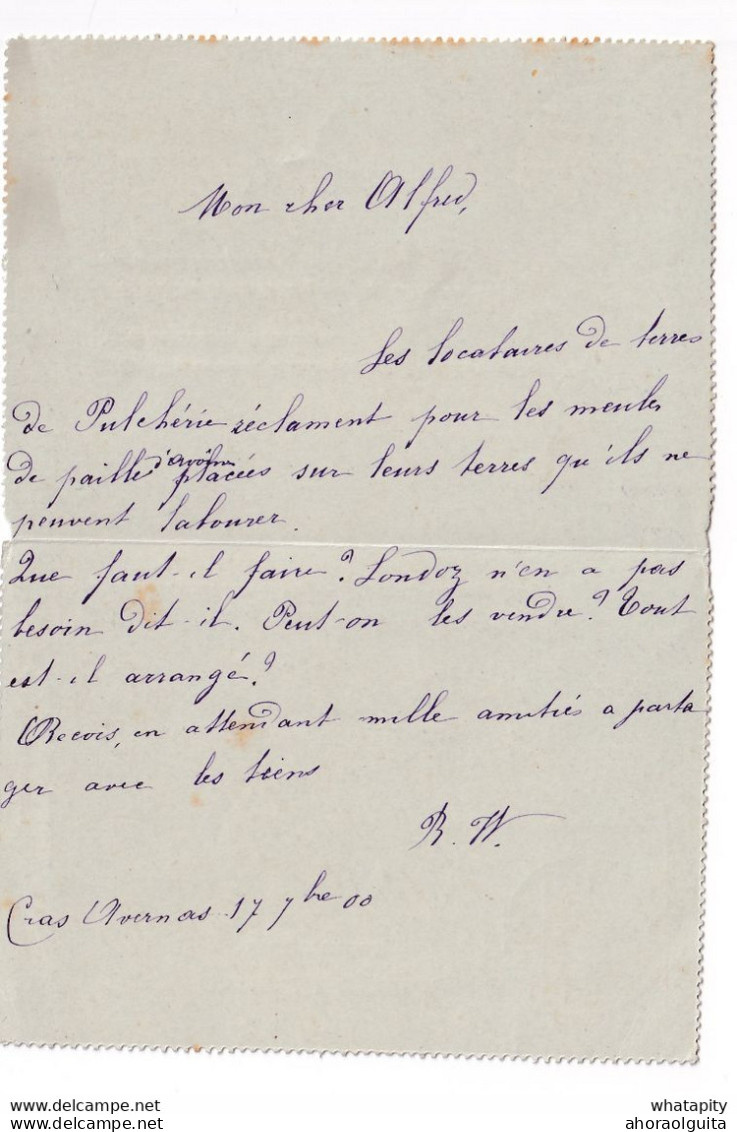 Mon cher Alfred,
Les locataires de terres
de Pulchérie réclament pour les meules
de paille d'avoine placées sur leurs terres qu'ils ne
peuvent labourer.
Que faut-il faire? Londoz n'en a pas
besoin dit-il. Peut-on les vendre? Tout
est-il arrangé?
Reçois, en attendant mille amitiés a parta
ger avec les tiens
R. W.
Cras Avernas 17 7bre 00
whatapity
ahoraolguita